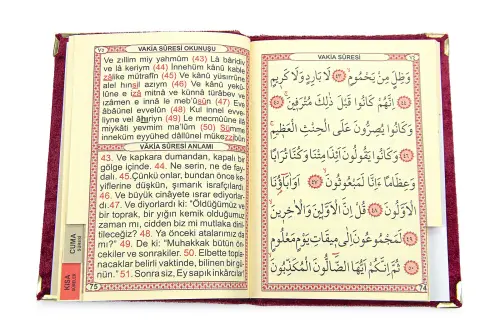 ٧٥
VAKİA SÛRESİ OKUNUŞU
Ve zıllim miy yahmûm (43) Lâ bâridiv
ve lâ keriym (44) İnnehüm kânû kable
zâlike mütrafîn (45) Ve kânû yüsırrûne
alel hınsil azıym (46) Ve kânû yekû-
lûne e izâ mitnâ ve künnâ türâbev ve
ızâmen e innâ le meb'ûsûn (47) Eve
âbâünel evvelûn (48) Kul innel evve-
liyne vel âhıriyn (49) Le mecmûûne ilâ
miykâti yevmim ma'lûm (50) Sümme
inneküm eyyühed dâllûnel mükezzibûn
VÂKİA SÛRESİ ANLAMI
43. Ve kapkara dumandan, kapalı bir
gölge içinde. 44. Ne serin, ne de fay-
dalı. 45.Çünkü onlar, bundan önce ke-
yiflerine düşkün, şımarık israfçılardı.
46. Ve büyük cinâyete ısrar ediyorlar-
dı.47. Ve diyorlardı ki: "Öldüğümüz ve
bir toprak, bir yığın kemik olduğumuz
zaman mı, cidden biz mi mutlaka diri-
tileceğiz? 48. Ya önceki atalarımız da
mı?" 49. De ki: "Muhakkak bütün ön-
cekiler ve sonrakiler. 50. Elbette topla-
nacaklar belirli vaktinde, bilinen bir gü-
nün." 51. Sonra siz, Ey sapık inkârcılar!
75
CUMA
KISA
SÛRELER
VAKİA SÛRESİ
وَظِلٍّ مِنْ يَحْمُومٍ ٤٣ لَا بَارِدٍ وَلَا كَرِيمٍ
٤٤ اِنَّهُمْ كَانُوا قَبْلَ ذٰلِكَ مُتْرَفِينَ ٤٥
وَكَانُوا يُصِرُّونَ عَلَى الْحِنْثِ الْعَظِيمِ
٤٦ وَكَانُوا يَقُولُونَ اَئِذَا مِتْنَا وَكُنَّا تُرَابًا
وَعِظَامًا ءَاِنَّا لَمَبْعُوثُونَ ٤٧ اَوَاٰبَاؤُنَا
الْاَوَّلُونَ ٤٨ قُلْ اِنَّ الْاَوَّلِينَ وَالْاٰخِرِينَ
٤٩ لَمَجْمُوعُونَ اِلٰى مِيقَاتِ يَوْمٍ مَعْلُومٍ
٥٠ ثُمَّ اِنَّكُمْ اَيُّهَا الضَّالُّونَ الْمُكَذِّبُونَ
74